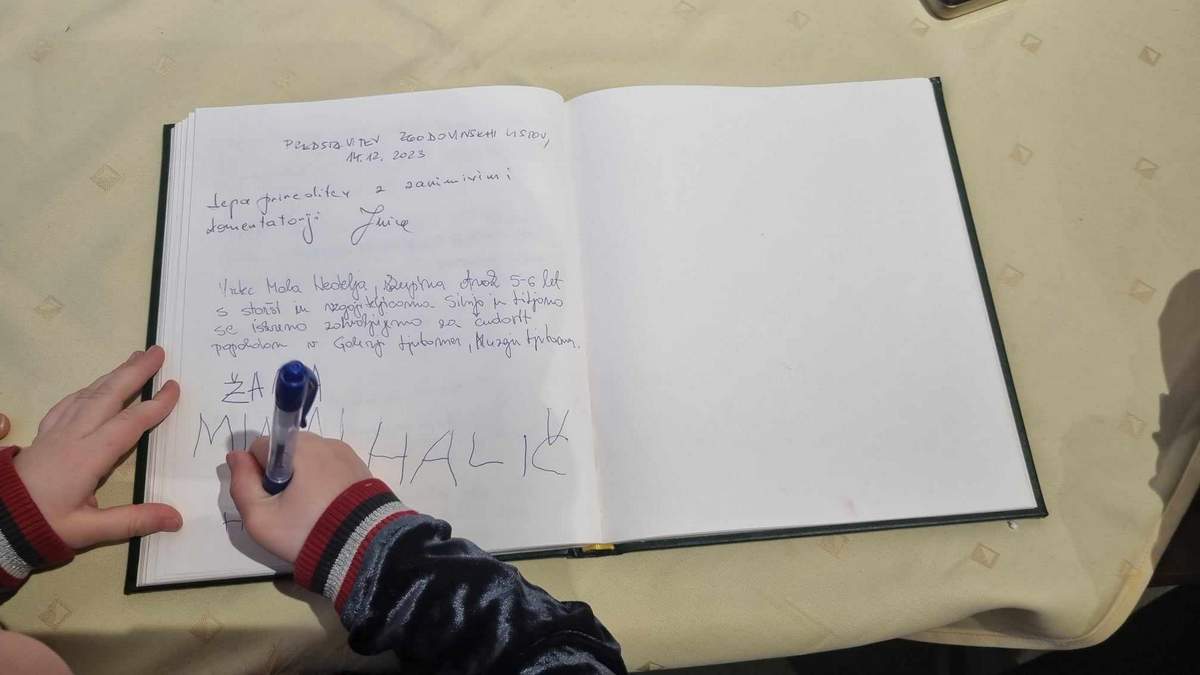 PREDSTAVITEV ZGODOVINSKIH LISTOV,
14.12. 2023
Lepa prireditev z zanimivimi
komentatorji
Vrtec Mala Nedelja, skupina otrok 5-6 let
s starši in vzgojiteljicama Silvijo in Liljano
se iskreno zahvaljujemo za čudovit
popoldan v Galeriji Ljutomer, Muzeju Ljutomer.
HALIČ